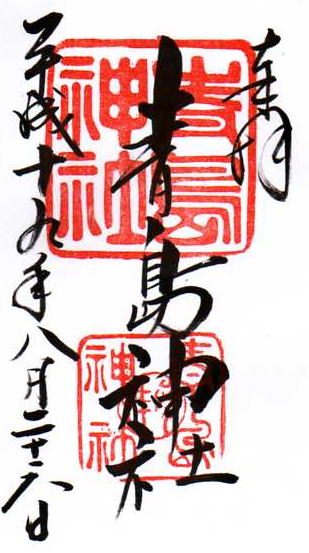 奉拝
青島神社
平成十九年八月二十六日
青島神社
青島神社